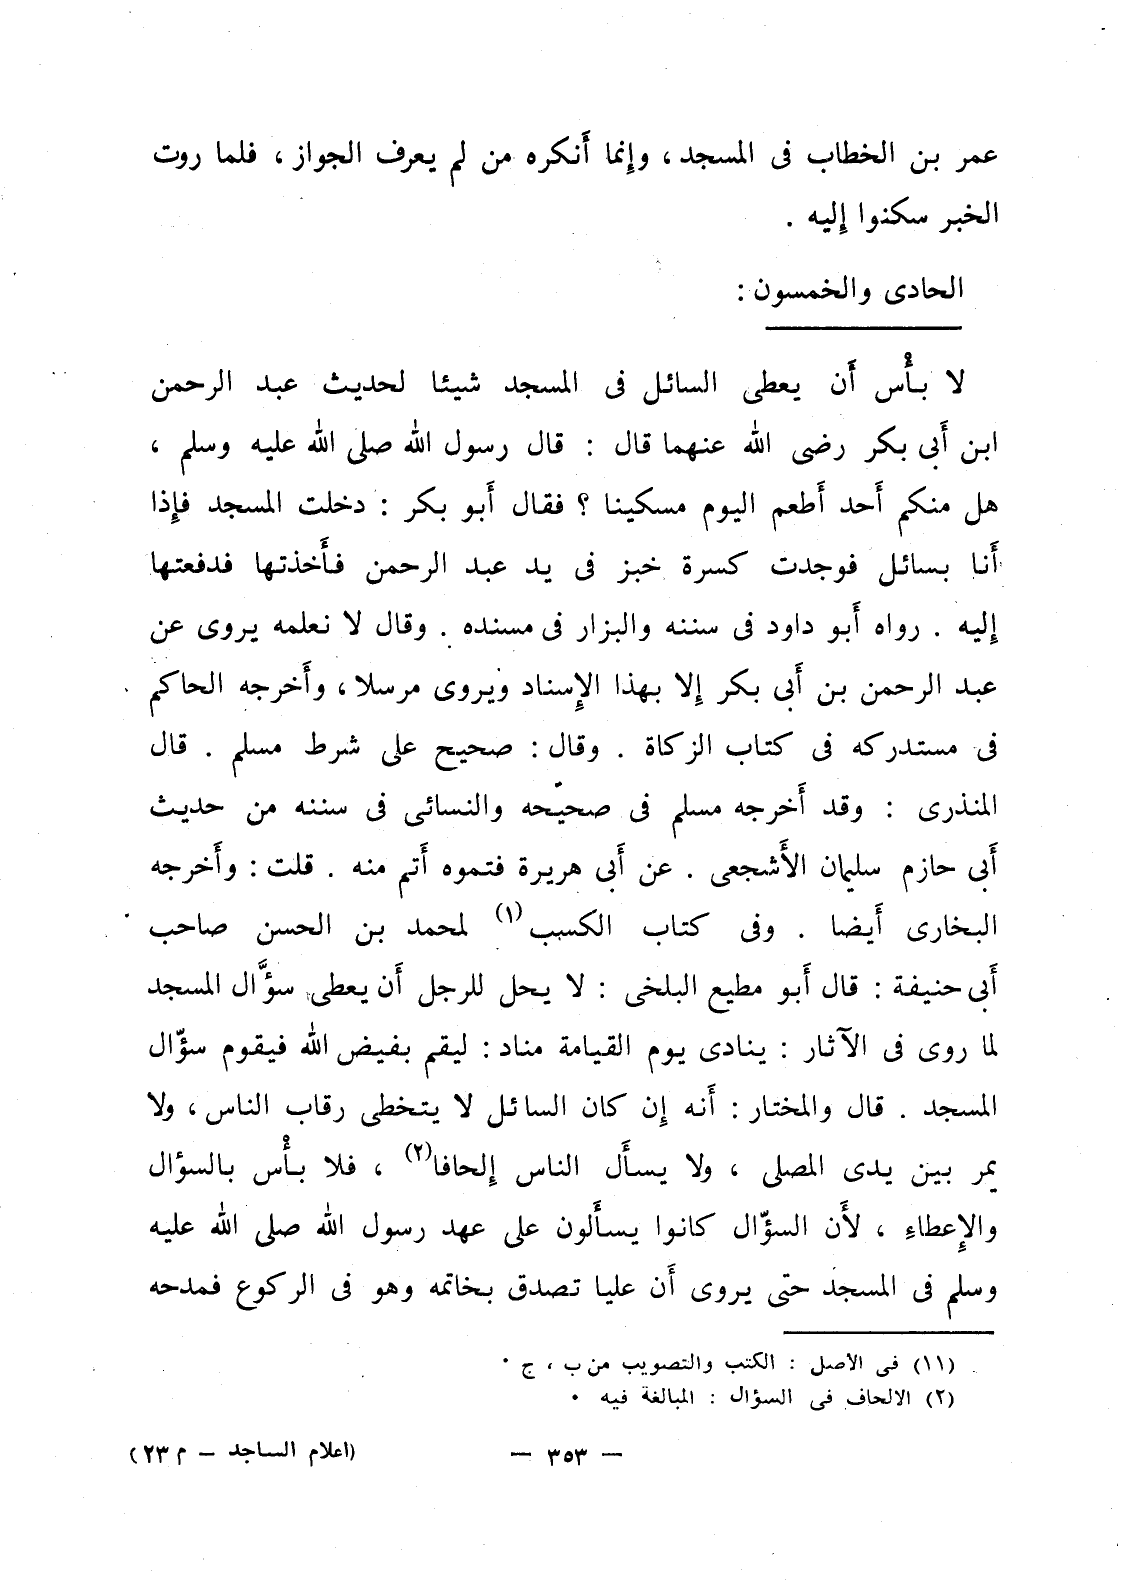 عمر بن الخطاب فى المسجد ، وإنما أنكره من لم يعرف الجواز ، فلما روت
الخبر سكنوا إليه .
الحادى والخمسون :
لا بأْس أَن يعطى السائل فى المسجد شيئا لحديث عبد الرحمن
ابن أَبى بكر رضى الله عنهما قال : قال رسول الله صلى الله عليه وسلم ،
هل منكم أَحد أَطعم اليوم مسكينا ؟ فقال أَبو بكر : دخلت المسجد فإِذا
أَنا بسائل فوجدت كسرة خبز فى يد عبد الرحمن فأَخذتها فدفعتها
إِليه . رواه أَبو داود فى سننه والبزار فى مسنده . وقال لا نعلمه يروى عن
عبد الرحمن بن أَبى بكر إِلا بهذا الإِسناد ويروى مرسلا ، وأَخرجه الحاكم
فى مستدركه فى كتاب الزكاة . وقال : صحيح على شرط مسلم . قال
المنذرى : وقد أَخرجه مسلم فى صحيحه والنسائى فى سننه من حديث
أَبى حازم سليمان الأَشجعى . عن أَبى هريرة فتموه أَتم منه . قلت : وأَخرجه
البخارى أَيضا . وفى كتاب الكسب (١) لمحمد بن الحسن صاحب
أَبى حنيفة : قال أَبو مطيع البلخى : لا يحل للرجل أَن يعطى سؤَّال المسجد
لما روى فى الآثار : ينادى يوم القيامة مناد : ليقم بفيض الله فيقوم سؤّال
المسجد . قال والمختار : أَنه إِن كان السائل لا يتخطى رقاب الناس ، ولا
يمر بين يدى المصلى ، ولا يسأَل الناس إِلحافا (٢) ، فلا بأْس بالسؤال
والإِعطاءِ ، لأَن السؤّال كانوا يسأَلون على عهد رسول الله صلى الله عليه
وسلم فى المسجد حتى يروى أَن عليا تصدق بخاتمه وهو فى الركوع فمدحه
(١١) فى الاصل : الكتب والتصويب من ب ، ج .
(٢) الالحاف فى السؤال : المبالغة فيه .
— ٣٥٣ — (اعلام الساجد — م ٢٣)